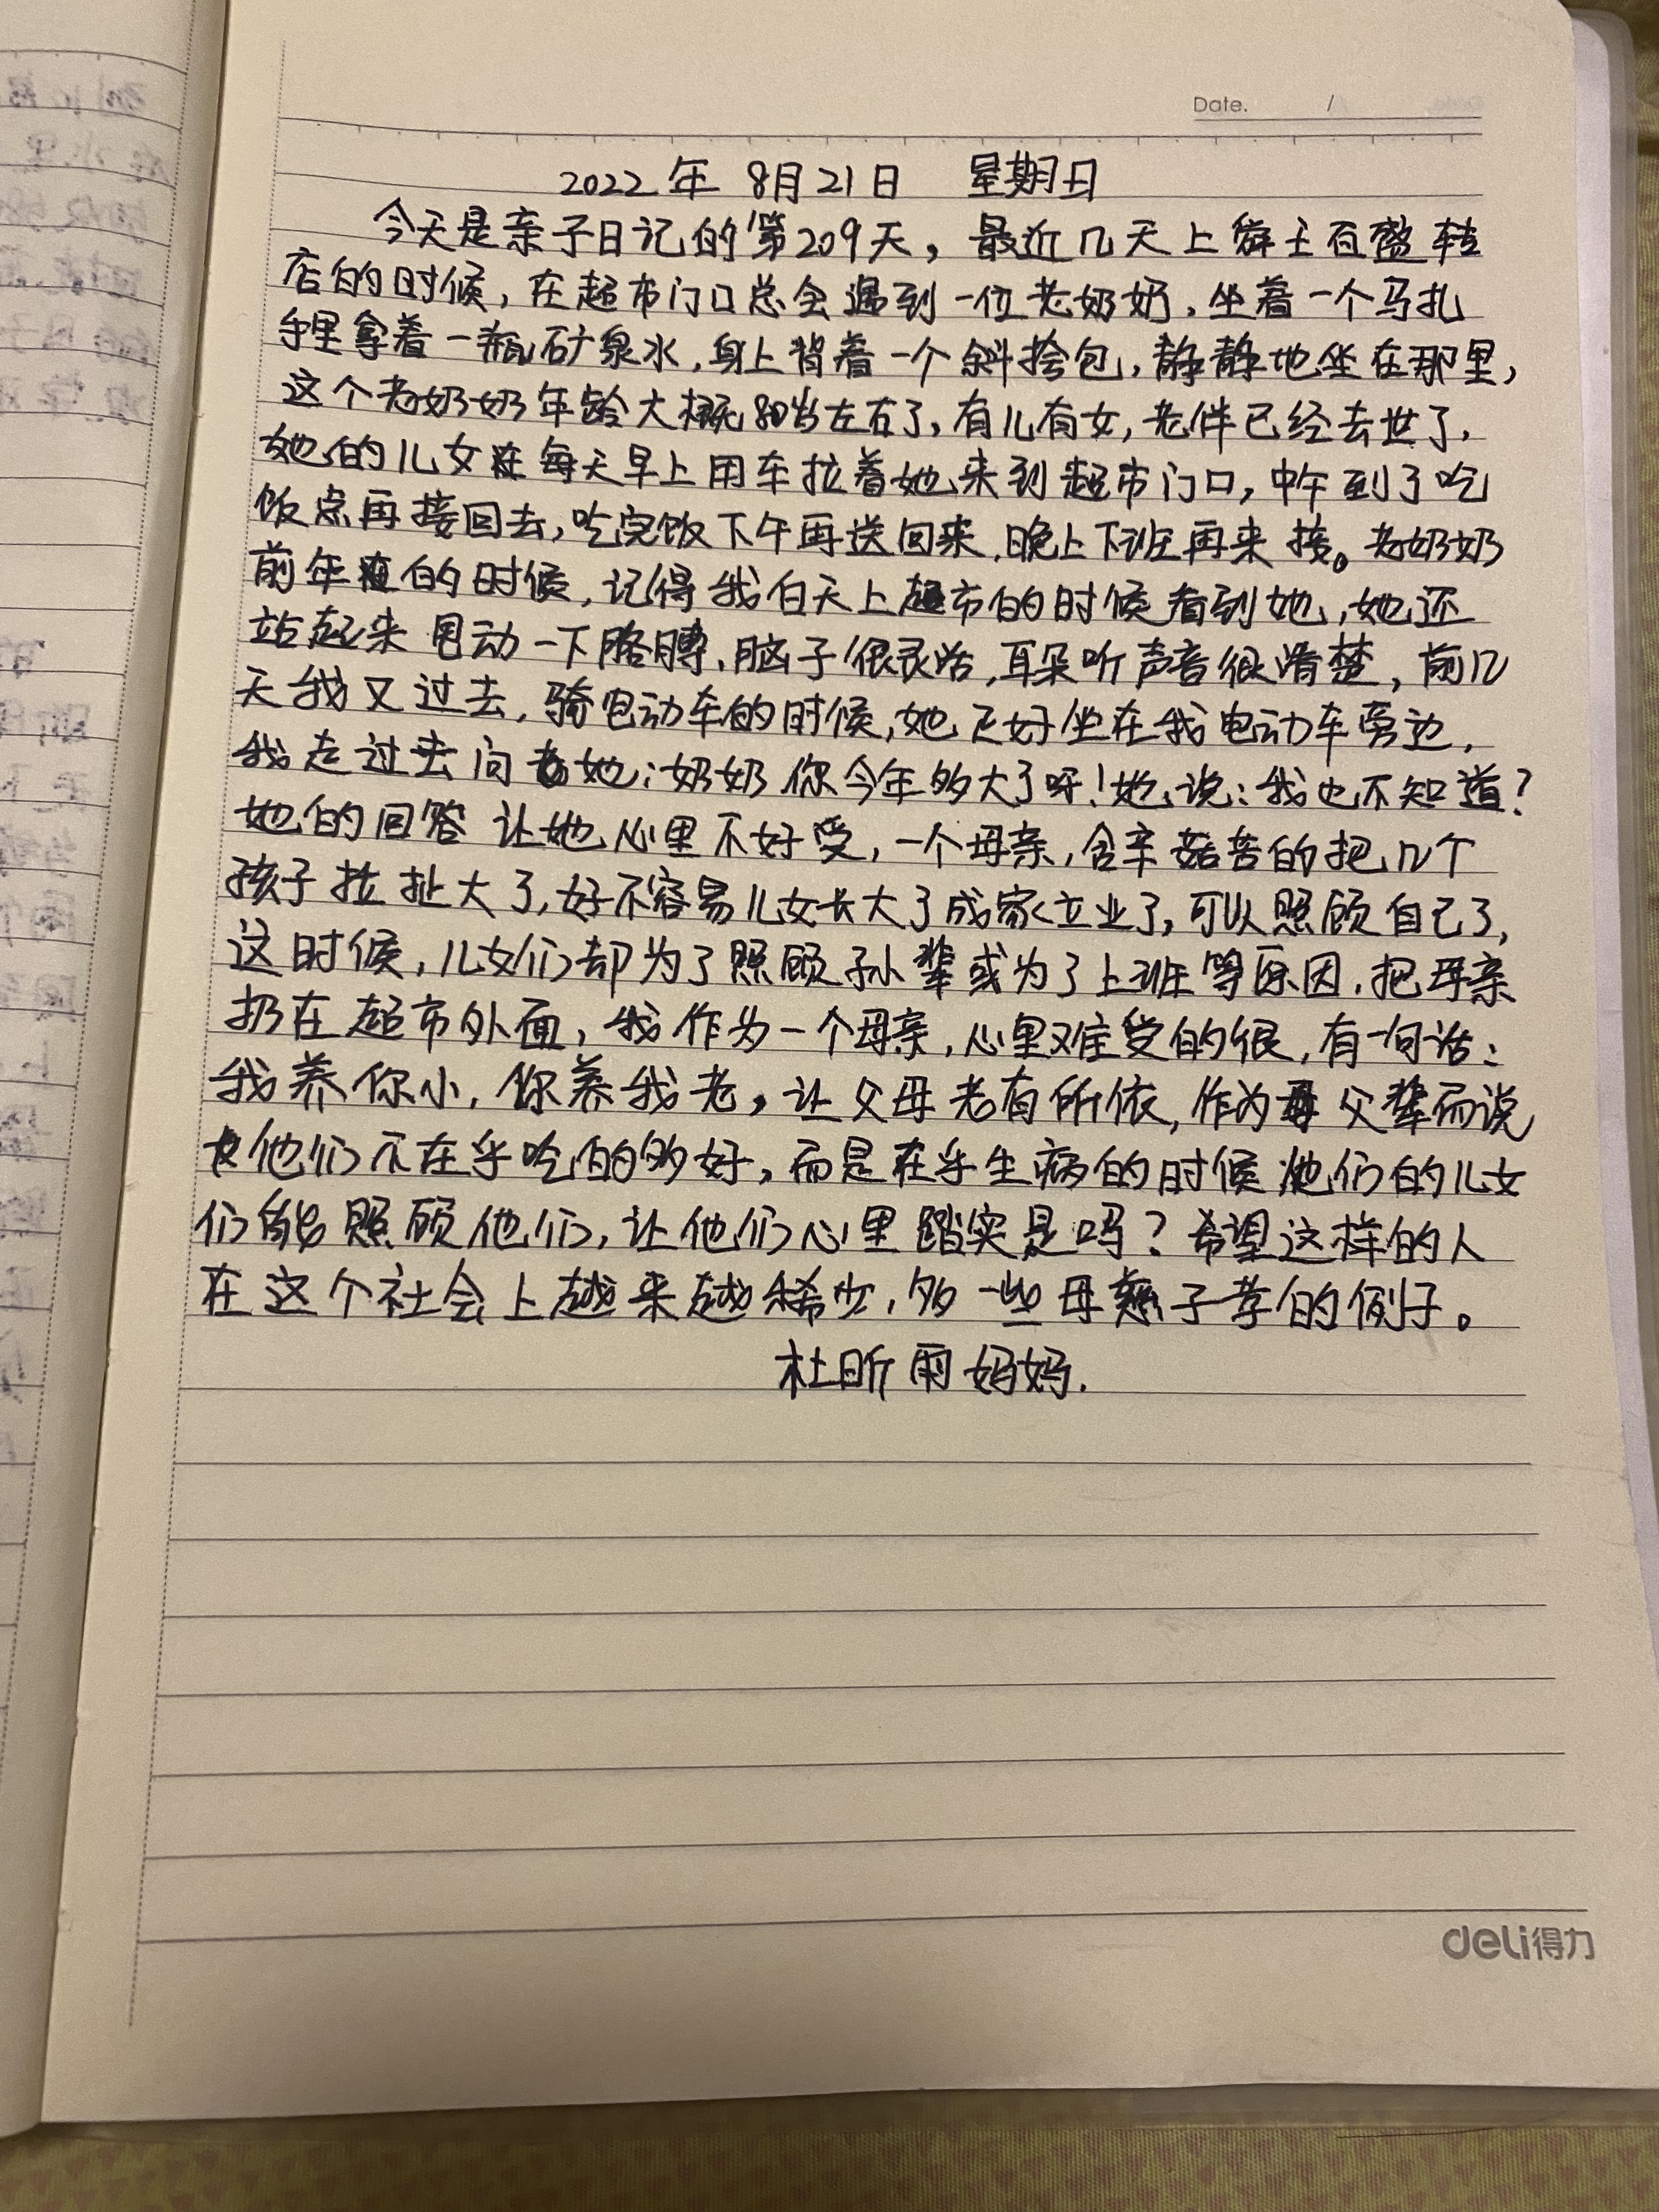 Date. /
2022年 8月21日 星期日
今天是亲子日记的第209天，最近几天上辟土百盛转
店的时候，在超市门口总会遇到一位老奶奶，坐着一个马扎
手里拿着一瓶矿泉水，身上背着一个斜挎包，静静地坐在那里，
这个老奶奶年龄大概80岁左右了，有儿有女，老伴已经去世了，
她的儿女每天早上用车拉着她来到超市门口，中午到了吃
饭点再接回去，吃完饭下午再送回来，晚上下班再来接。老奶奶
前年的时候，记得我白天上超市的时候看到她，她还
站起来甩动一下胳膊，脑子很灵活，耳朵听声音很清楚，前几
天我又过去，骑电动车的时候，她正好坐在我电动车旁边，
我走过去问她：奶奶你今年多大了呀！她说：我也不知道？
她的回答让她心里不好受，一个母亲，含辛茹苦的把几个
孩子拉扯大了，好不容易儿女长大了成家立业了，可以照顾自己了，
这时候，儿女们却为了照顾孙辈或为了上班等原因，把母亲
扔在超市外面，我作为一个母亲，心里难受的很，有一句话：
我养你小，你养我老，让父母老有所依，作为父辈而说
他们不在乎吃的多好，而是在乎生病的时候他们的儿女
们能照顾他们，让他们心里踏实是吗？希望这样的人
在这个社会上越来越稀少，多一些母慈子孝的例子。
杜昕雨妈妈.
deli得力